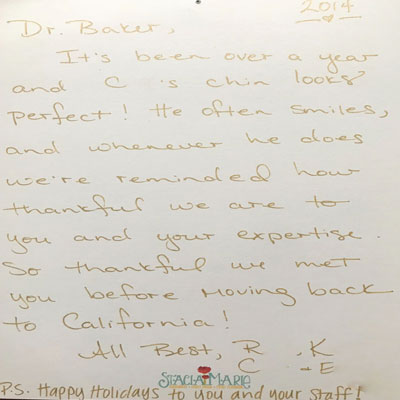 2014
Dr. Baker,
It's been over a year
and C 's chin looks
perfect! He often smiles,
and whenever he does
we're reminded how
thankful we are to
you and your expertise.
So thankful we met
you before moving back
to California!
All Best, R , K
C + E
STACIA MARIE
P.S. Happy Holidays to you and your staff!